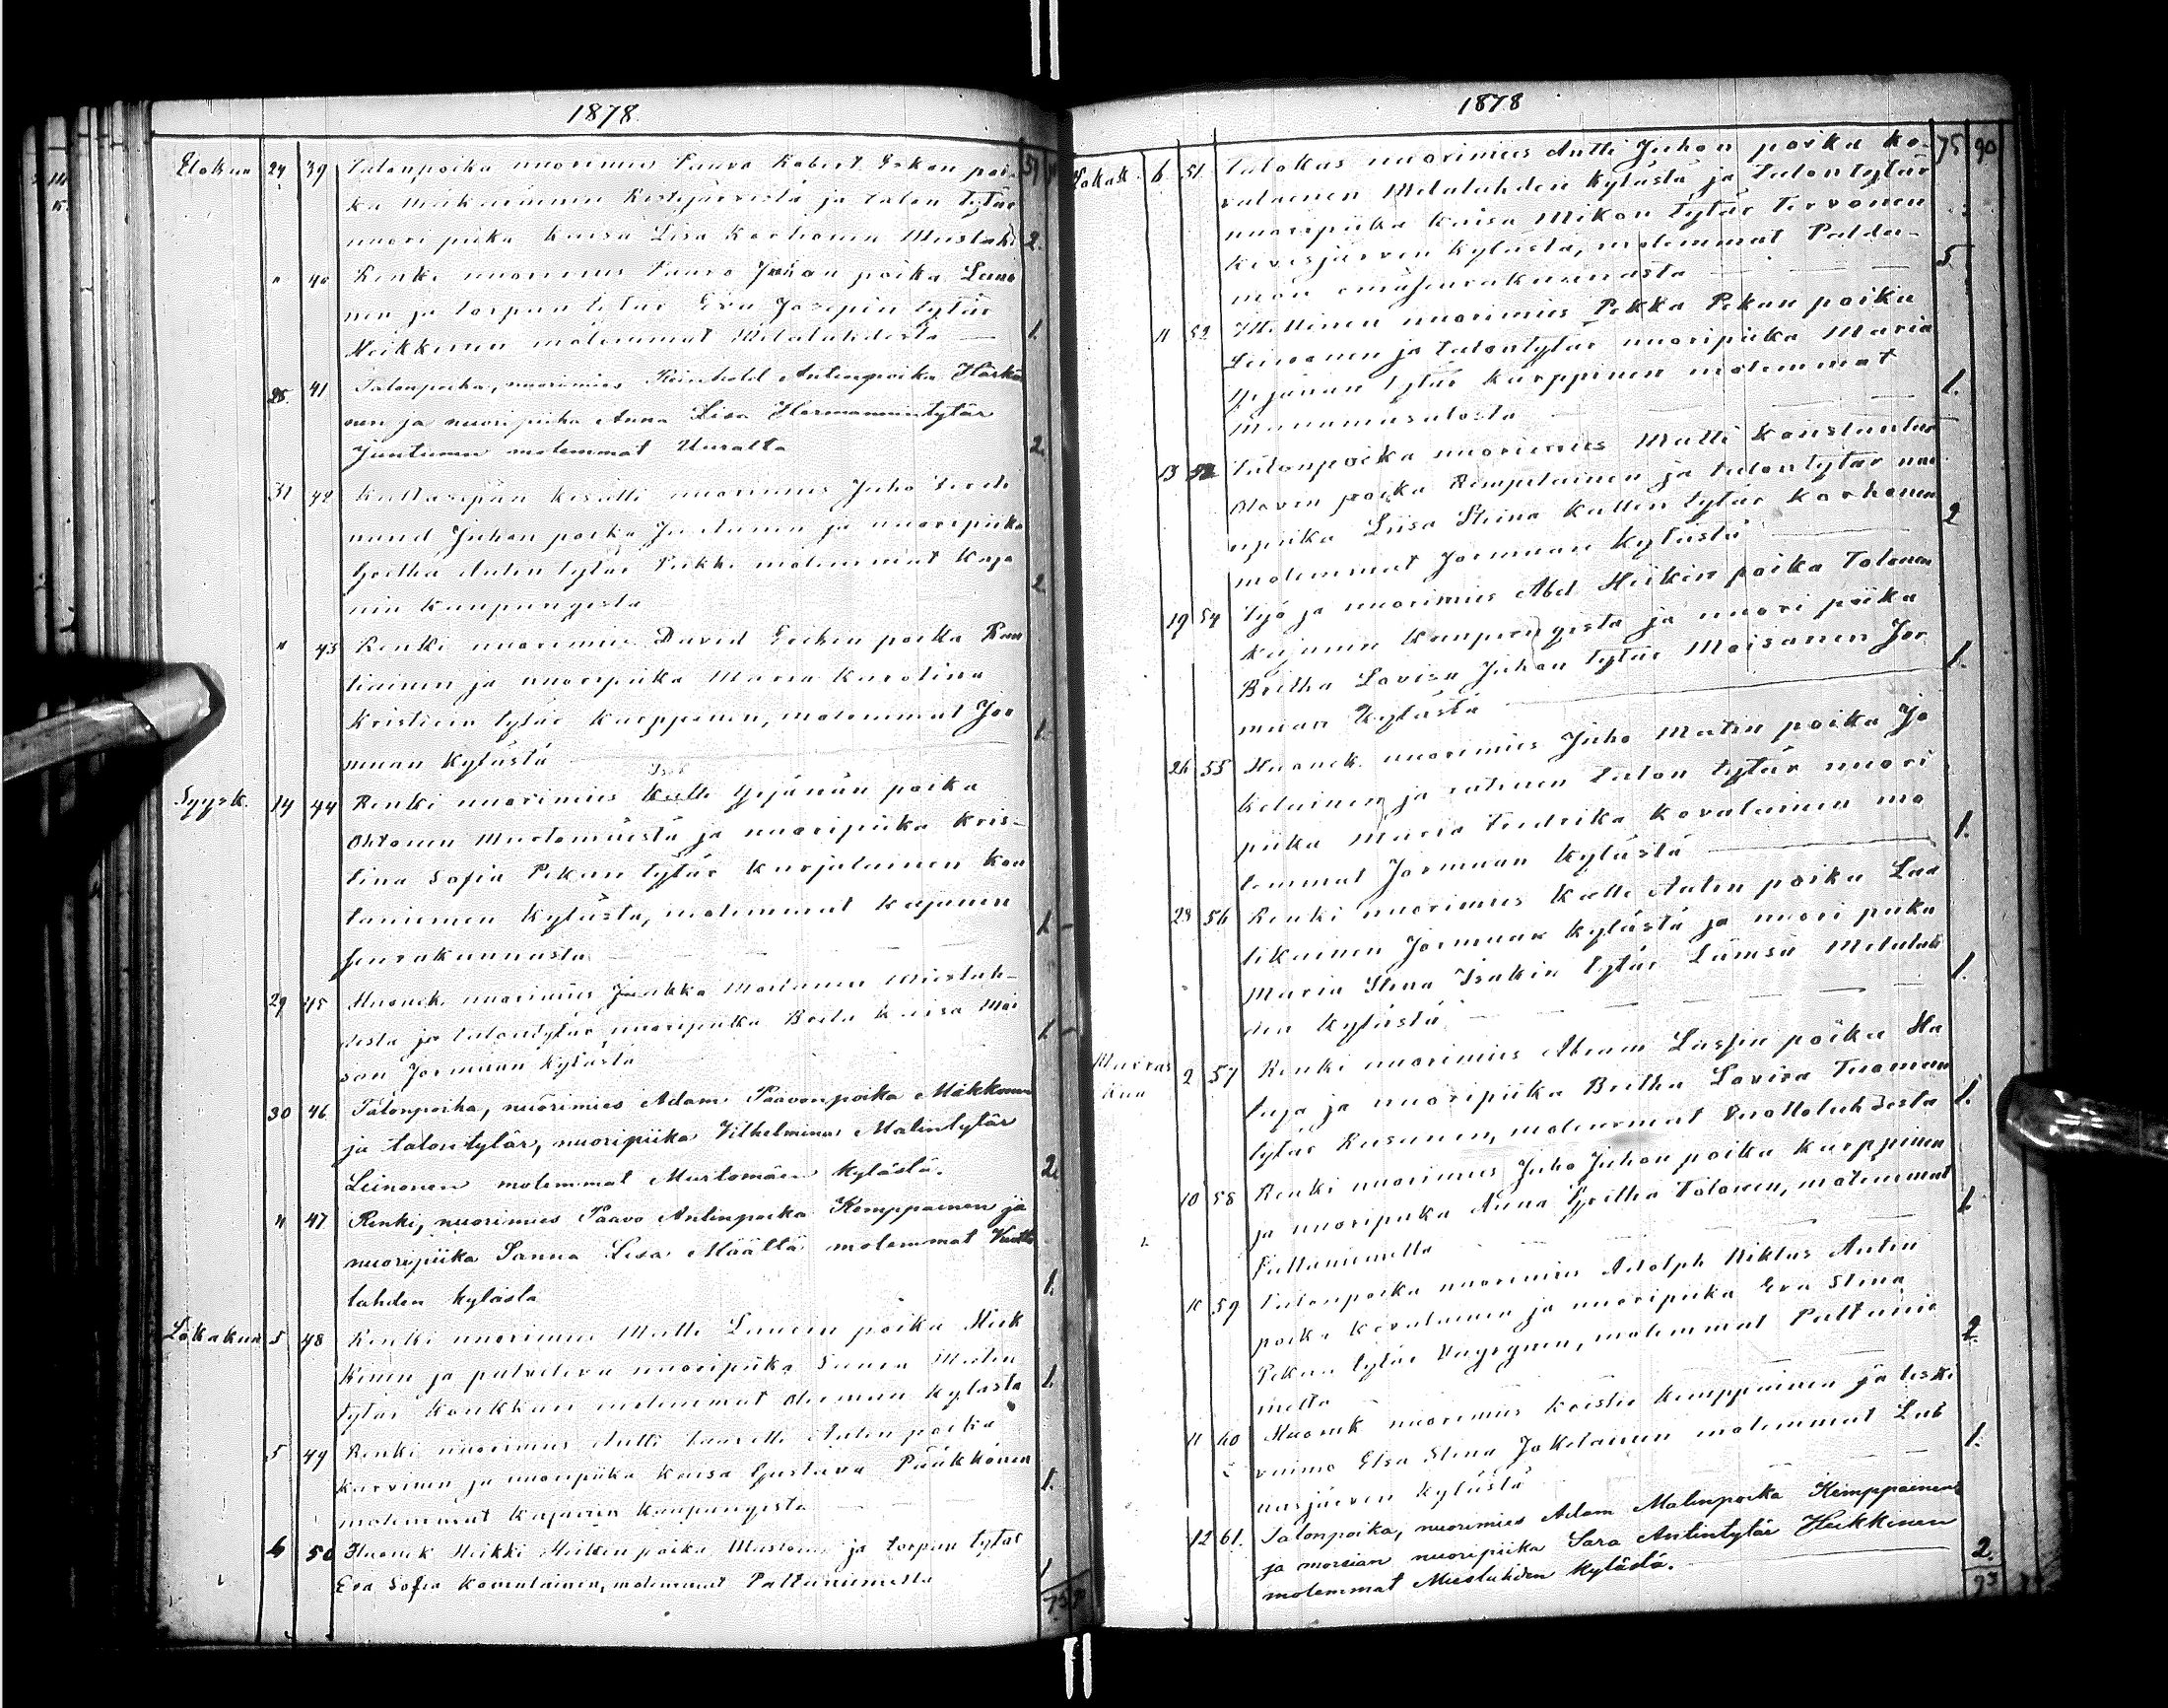 1878.
Elokuu 24 39 Talonpoika nuorimies Paavo Robert Erkon poi-
ka Ristijärvestä ja talon tytär
nuoripiika Kaisa Liisa Korhonen 2.
" 40 Renki nuorimies Juhan poika Leino
nen ja torpan tytär Eva Josepin tytär
Heikkinen molemmat Mieslahdesta 1.
25. 41 Talonpoika, nuorimies Reinhold Antinpoika Härkö
nen ja nuoripiika Anna Lisa Hermannintytär
Juntunen molemmat Uuralta 2.
31 42 Kultasepän kisälli nuorimies Juho Ferdi
nand Juhan poika Juntunen ja nuoripiika
Gretha Antin tytär molemmat Kaja
nin kaupungista 2.
" 43 Renki nuorimies David poika
tiainen ja nuoripiika Maria Karolina
Kristian tytär Karppinen, molemmat Jor
muan kylästä 1.
Syysk. 14 44 Renki nuorimies Kalle Yrjänän poika
Ohtonen Murtomäistä ja nuoripiika Kris-
tina Sofia Pekan tytär Karjalainen Kou
taniemen kylästä, molemmat Kajanin
seurakunnasta 1
29 45 Huonek. nuorimies Jaakko Mieslah-
desta ja talontytär nuoripiika Brita Kaisa Moi
san Jormuan kylästä 1
30 46 Talonpoika, nuorimies Adam Paavonpoika Mäkkönen
ja talontytär, nuoripiika Vilhelmina Matintytär
Leinonen molemmat Murtomäen kylästä. 2.
" 47 Renki, nuorimies Paavo Antinpoika Komppainen ja
nuoripiika Sanna Lisa Määttä molemmat Vuotto
lahden kylästä 1.
Lokakuu 5 48 Renki nuorimies Matti Laurin poika Heik
kinen ja palveleva nuoripiika Matin
tytär molemmat kylästä 1.
5 49 Renki nuorimies Antti Antin poika
Karvinen ja nuoripiika Kaisa Gustava Pääkkönen
molemmat Kajanin kaupungista 1.
6 50 Huonek Heikki Heikin poika Mustonen ja torpan tytär
Eva Sofia Kovalainen, molemmat Paltaniemeltä 1
1878
Lokak. 6 51 Talokas nuorimies Antti Juhon poika Ko- 75 90
valainen Melalahden kylästä ja talontytär
nuoripiika Kaisa Mikon tytär Tervonen
Kivesjärven kylästä, molemmat Palda-
mon emäseurakunnasta 5
" 52 Itellinen nuorimies Pekka Pekan poika
Leinonen ja talontytär nuoripiika Maria
Yrjänän tytär Karppinen molemmat
Manamansalosta 1.
13 53 Talonpoika nuorimies Matti Konstantin
Olavin poika Rimpilainen ja talontytär nuo
ripiika Liisa Stina Kallen tytär Korhonen
molemmat Jormuan kylästä 2
19 54 Työ ja nuorimies Abel Heikin poika Tolonen
Kajanin kaupungista ja nuoripiika
Britha Lovisa Juhon tytär Moisanen Jor
muan kylästä 1.
26 55 Huonek. nuorimies Juho Matin poika Jo
kelainen ja entinen talon tytär nuori
piika Maria Fredrika Kovalainen mo
lemmat Jormuan kylästä 1.
28 56 Renki nuorimies Kalle Antin poika Laa
tikainen Jormuan kylästä ja nuoripiika
Maria Stina Isakin tytär Lämsä Melalah
den kylästä 1.
Marras
kuu 2 57 Renki nuorimies Abram Lassin poika Ha
taja ja nuoripiika Britha Lovisa Tuoman
tytär Rusanen, molemmat Vuottolahdesta 1.
10 58 Renki nuorimies Juho Juhon poika Karppinen
ja nuoripiika Anna Gretha Tolonen, molemmat
Paltaniemeltä 1.
10 59 Talonpoika nuorimies Adolph Niklas Antin
poika Kovalainen ja nuoripiika Eva Stina
Pekan tytär molemmat Paltanie
meltä 2.
11 60 Huonek nuorimies Kristo Kemppainen ja leski
vaimo Elsa Stina Jokelainen molemmat Lah
nasjärven kylästä 1.
12 61. Talonpoika, nuorimies Adam Matinpoika Kemppainen
ja morsian nuoripiika Sara Antintytär Heikkinen
molemmat Mieslahden kylästä. 2.
93